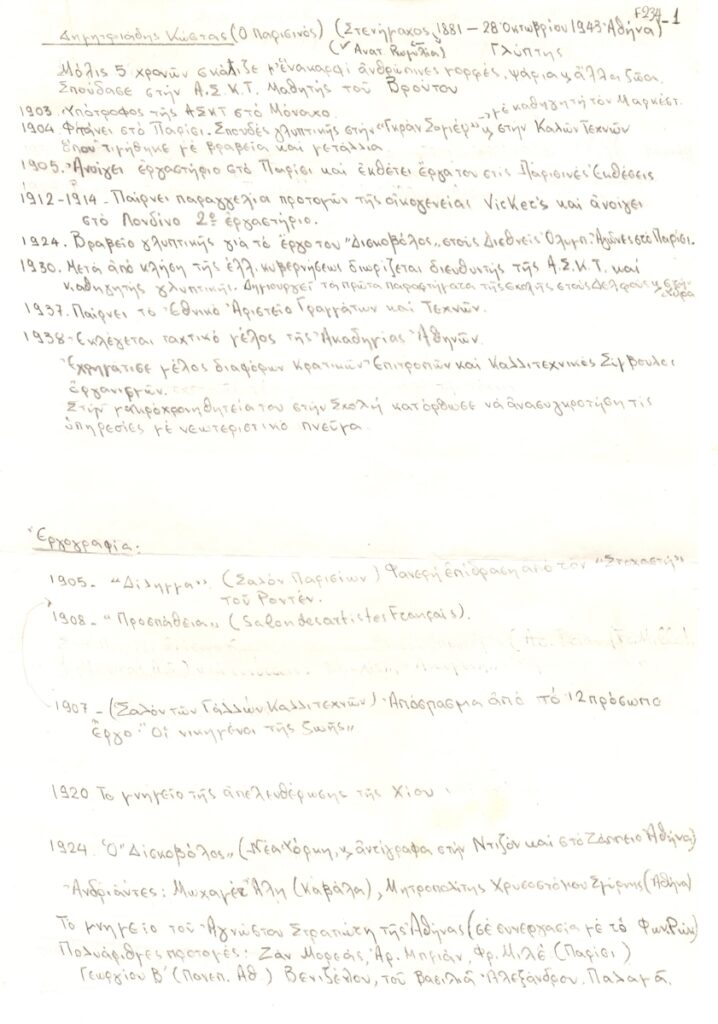 F234-1
Δημητριάδης Κώστας (Ὁ Παρισινός) (Στενήμαχος 1881 – 28 Ὀκτωβρίου 1943 Ἀθήνα)
(Ἀνατ. Ρωμυλία) Γλύπτης
Μόλις 5 χρονῶν σκάλιζε ἀνθρώπινες μορφές, ψάρια κ ἄλλα ζῶα.
Σπούδασε στήν Α.Σ.Κ.Τ. Μαθητής τοῦ Βρούτου
1903. Ὑπότροφος τῆς ΑΣΚΤ στό Μόναχο.
μέ καθηγητή τόν
1904. Φτάνει στό Παρίσι. Σπουδές γλυπτικῆς στήν "Γκράν Σωμιέρ" κ στην Καλῶν Τεχνῶν
ὅπου τιμήθηκε μέ βραβεῖα καί μετάλλια.
1905. Ἀνοίγει ἐργαστήριο στό Παρίσι καί ἐκθέτει ἔργα του στις Παρισινές Ἐκθέσεις
1912-1914 - Παίρνει παραγγελία προτομῶν τῆς οἰκογενείας Vicker's καί ἀνοίγει
στό Λονδίνο 2ο ἐργαστήριο.
1924. Βραβεῖο γλυπτικῆς γιά τό ἔργο του "Δισκοβόλος" στούς Διεθνεῖς Ὀλυμπ. Ἀγῶνες στό Παρίσι.
1930. Μετά ἀπό κλήση τῆς ἑλλ. κυβερνήσεως διωρίζεται διευθυντής τῆς Α.Σ.Κ.Τ. καί
καθηγητής γλυπτικῆς. Δημιουργεῖ τά πρῶτα παραρτήματα τῆς σχολῆς στούς Δελφούς κ
1937. Παίρνει τό Ἐθνικό Ἀριστεῖο Γραμμάτων καί Τεχνῶν.
1938- Ἐκλέγεται τακτικό μέλος τῆς Ἀκαδημίας Ἀθηνῶν.
Ἐχρημάτισε μέλος διαφόρων κρατικῶν Ἐπιτροπῶν καί Καλλιτεχνικός Σύμβουλος
ὀργανισμῶν.
Στήν μακρόχρονη θητεία του στήν Σχολή κατόρθωσε νά ἀνασυγκροτήση τίς
ὑπηρεσίες μέ νεωτεριστικό πνεῦμα
Ἐργογραφία:
1905- "Δίλημμα". (Σαλόν Παρισίων) Φανερή ἐπίδραση ἀπό τόν "Στοχαστή"
τοῦ Ροντέν.
1908- "Προσπάθεια" (Salon des artistes Français).
1907 - (Σαλόν τῶν Γάλλων Καλλιτεχνῶν) Ἀπόσπασμα ἀπό τό 12πρόσωπο
ἔργο "Οἱ νικημένοι τῆς ζωῆς"
1920 Τό μνημεῖο τῆς ἀπελευθέρωσης τῆς Χίου.
1924. Ὁ "Δισκοβόλος" (Νέα Υόρκη, κ ἀντίγραφα στήν Ντιζόν καί στό Ζάππειο Ἀθήνα)
Ἀνδριάντες: Μωχαμέτ Ἄλη (Καβάλα), Μητροπολίτης Χρυσοστόμου Σμύρνης (Ἀθήνα)
Τό μνημεῖο τοῦ Ἀγνώστου Στρατιώτη τῆς Ἀθήνας (σέ συνεργασία μέ τό Φωκ. Ρώκ)
Πολυάριθμες προτομές: Ζάν Μορεάς, Ἀρ. Μπριάν, Φρ. Μιλέ (Παρίσι)
Γεωργίου Β' (Πανεπ. Αθ) Βενιζέλου, τοῦ βασιλιᾶ Ἀλεξάνδρου. Παλαμᾶ.